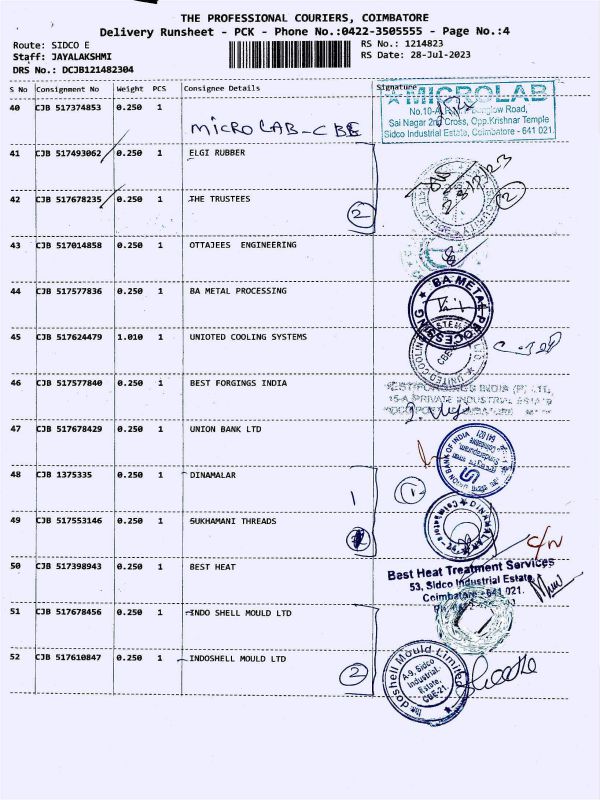 THE PROFESSIONAL COURIERS, COIMBATORE
Delivery Runsheet - PCK - Phone No.:0422-3505555 - Page No.:4
Route: SIDCO E
RS No.: 1214823
Staff: JAYALAKSHMI
RS Date: 28-Jul-2023
DRS No.: DCJB121482304
S No Consignment No Weight PCS Consignee Details Signature
40 CJB 517374853 0.250 1
MICROLAB-CBE
MICROLAB
Sai Nagar 2nd Cross, Opp.Krishnar Temple
Sidco Industrial Estate, Coimbatore - 641 021.
41 CJB 517493062 0.250 1 ELGI RUBBER
42 CJB 517678235 0.250 1 THE TRUSTEES
2
2
SECURITY
43 CJB 517014858 0.250 1 OTTAJEES ENGINEERING
44 CJB 517577836 0.250 1 BA METAL PROCESSING
BA METAL PROCESSING
45 CJB 517624479 1.010 1 UNIOTED COOLING SYSTEMS
UNITED COOLING
CBE
46 CJB 517577840 0.250 1 BEST FORGINGS INDIA
BEST FORGINGS INDIA (P) LTD,
15-A PRIVATE INDUSTRIAL ESTATE
47 CJB 517678429 0.250 1 UNION BANK LTD
UNION BANK OF INDIA
641 021
48 CJB 1375335 0.250 1 DINAMALAR
1
1
DINAMALAR
Coimbatore
49 CJB 517553146 0.250 1 SUKHAMANI THREADS
50 CJB 517398943 0.250 1 BEST HEAT
Best Heat Treatment Services
53, Sidco Industrial Estate,
Coimbatore - 641 021.
51 CJB 517678456 0.250 1 INDO SHELL MOULD LTD
52 CJB 517610847 0.250 1 INDOSHELL MOULD LTD
2
Indoshell Mould Limited
A-9, Sidco
Industrial
Estate,
CBE-21